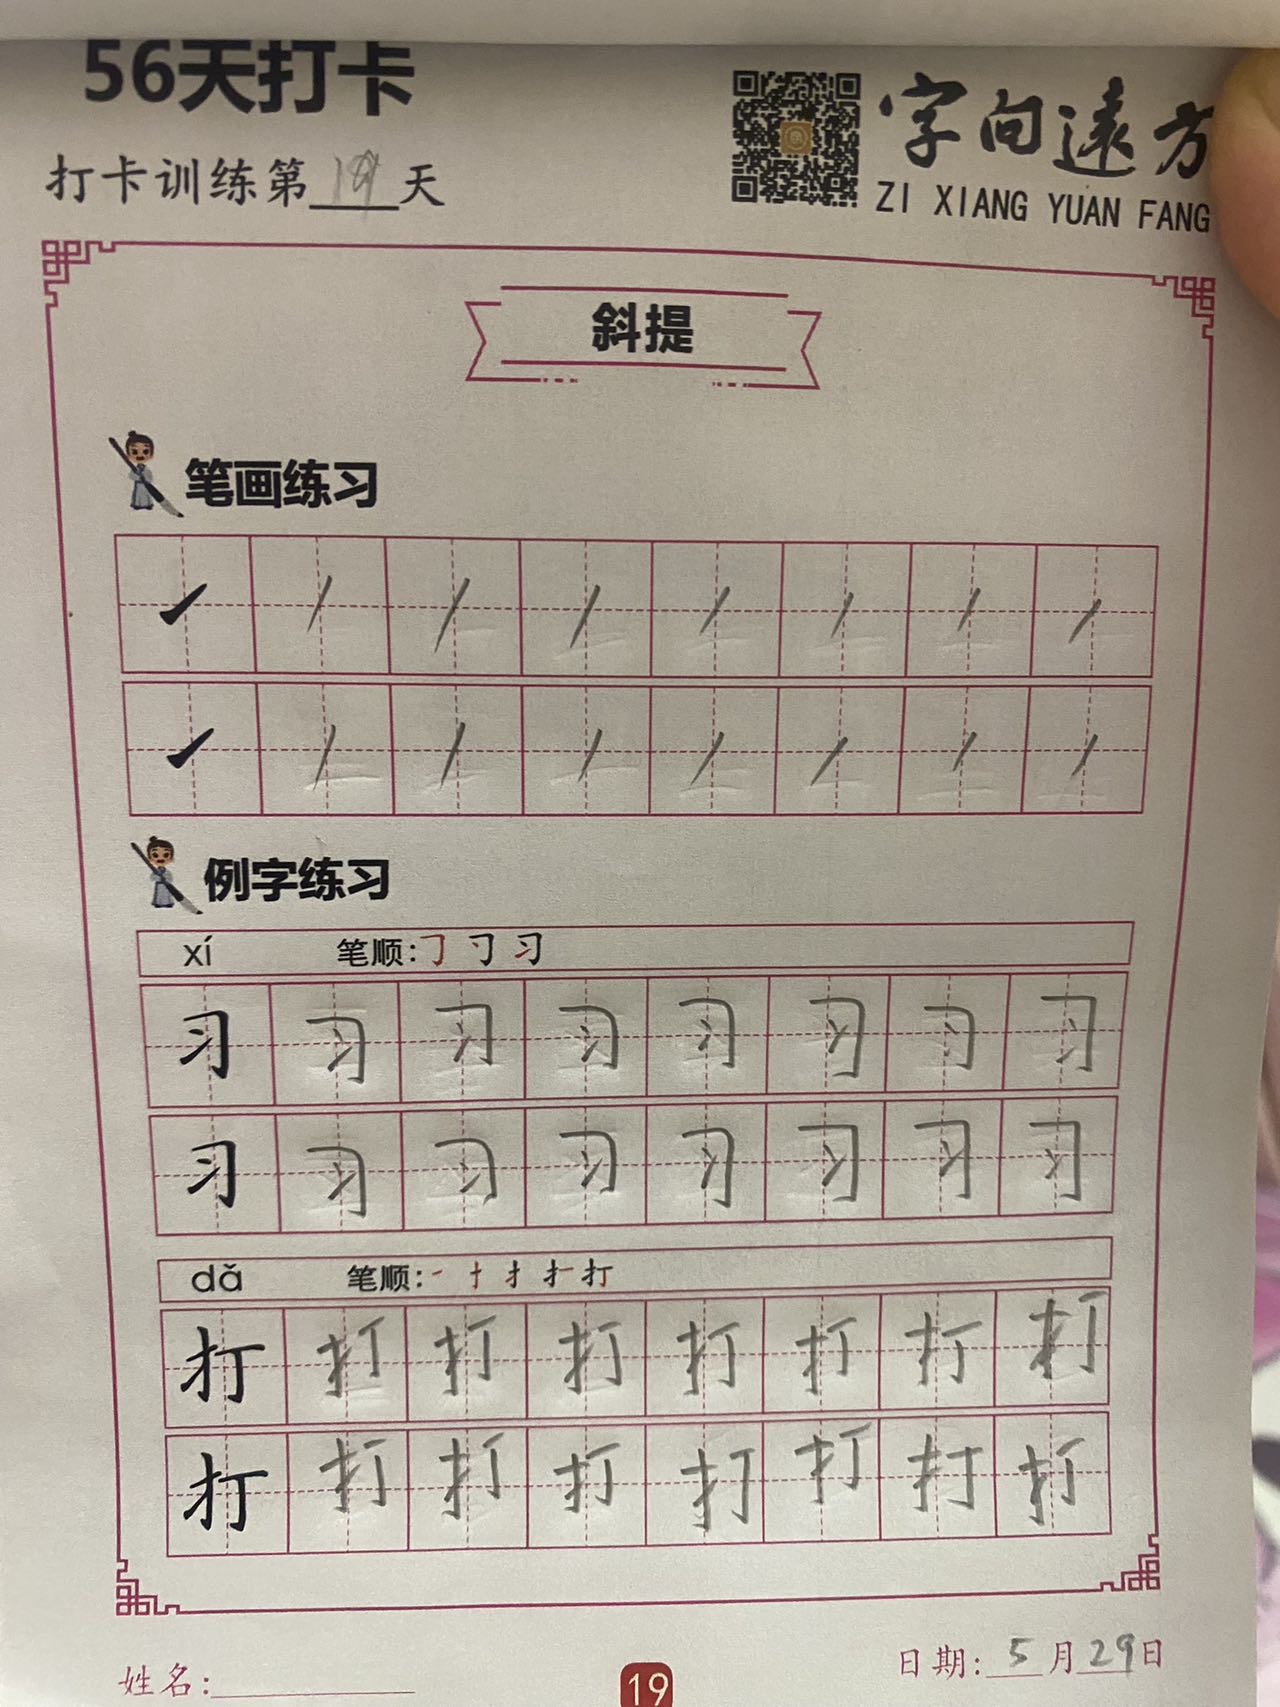 56天打卡
字向遠方
打卡训练第19天
ZI XIANG YUAN FANG
斜提
笔画练习
例字练习
xí 笔顺:
习 习 习 习 习 习 习 习
习 习 习 习 习 习 习 习
dǎ 笔顺: 一 十 扌 打
打 打 打 打 打 打 打 打
打 打 打 打 打 打 打 打
姓名: 日期: 5月29日
19